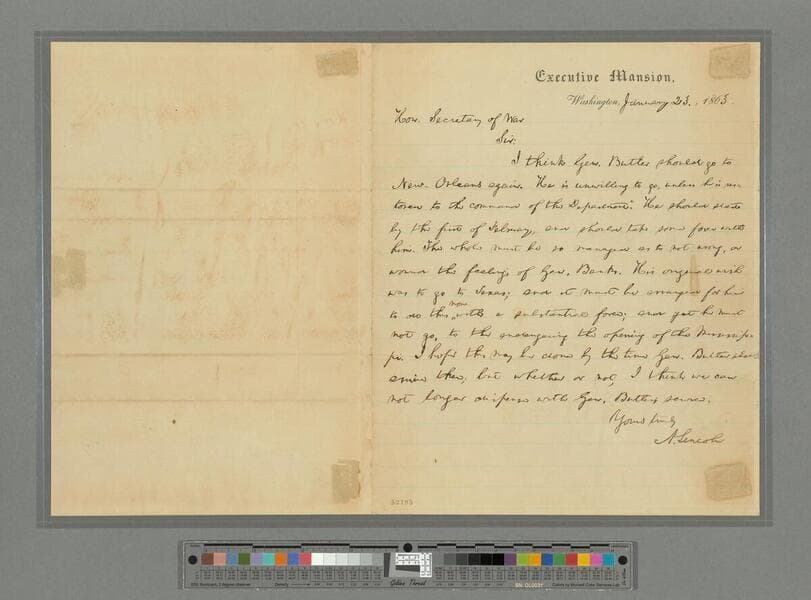 Executive Mansion,
Washington, January 23, 1863.
Hon. Secretary of War
Sir:
I think Gen. Butler should go to
New-Orleans again. He is unwilling to go, unless he is res-
tored to the command of the Department. He should start
by the first of February, and should take some force with
him. The whole must be so managed as to not wrong, or
wound the feelings of Gen. Banks. His original wish
was to go to Texas; and it must be arranged for him
to do this now with a substantial force; and yet he must
not go, to the endangering the opening of the Mississip-
pi. I hope this may be done by the time Gen. Butler shall
arrive there; but whether or not, I think we can
not longer dispense with Gen. Butler's services.
Yours truly
A. Lincoln
52185
Golden Thread